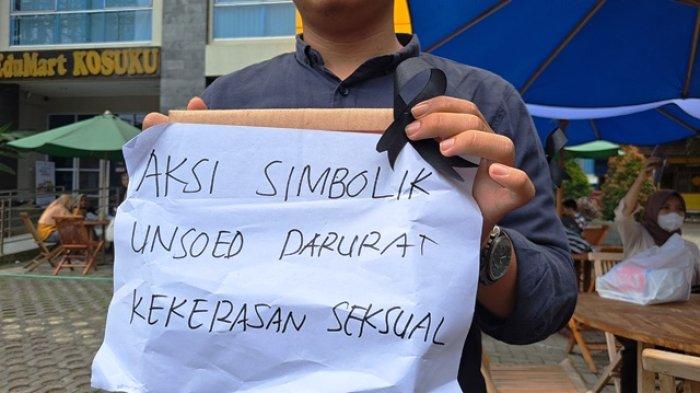 EduMart KOSUKU
AKSI SIMBOLIK
UNSOED DARURAT
KEKERASAN SEKSUAL